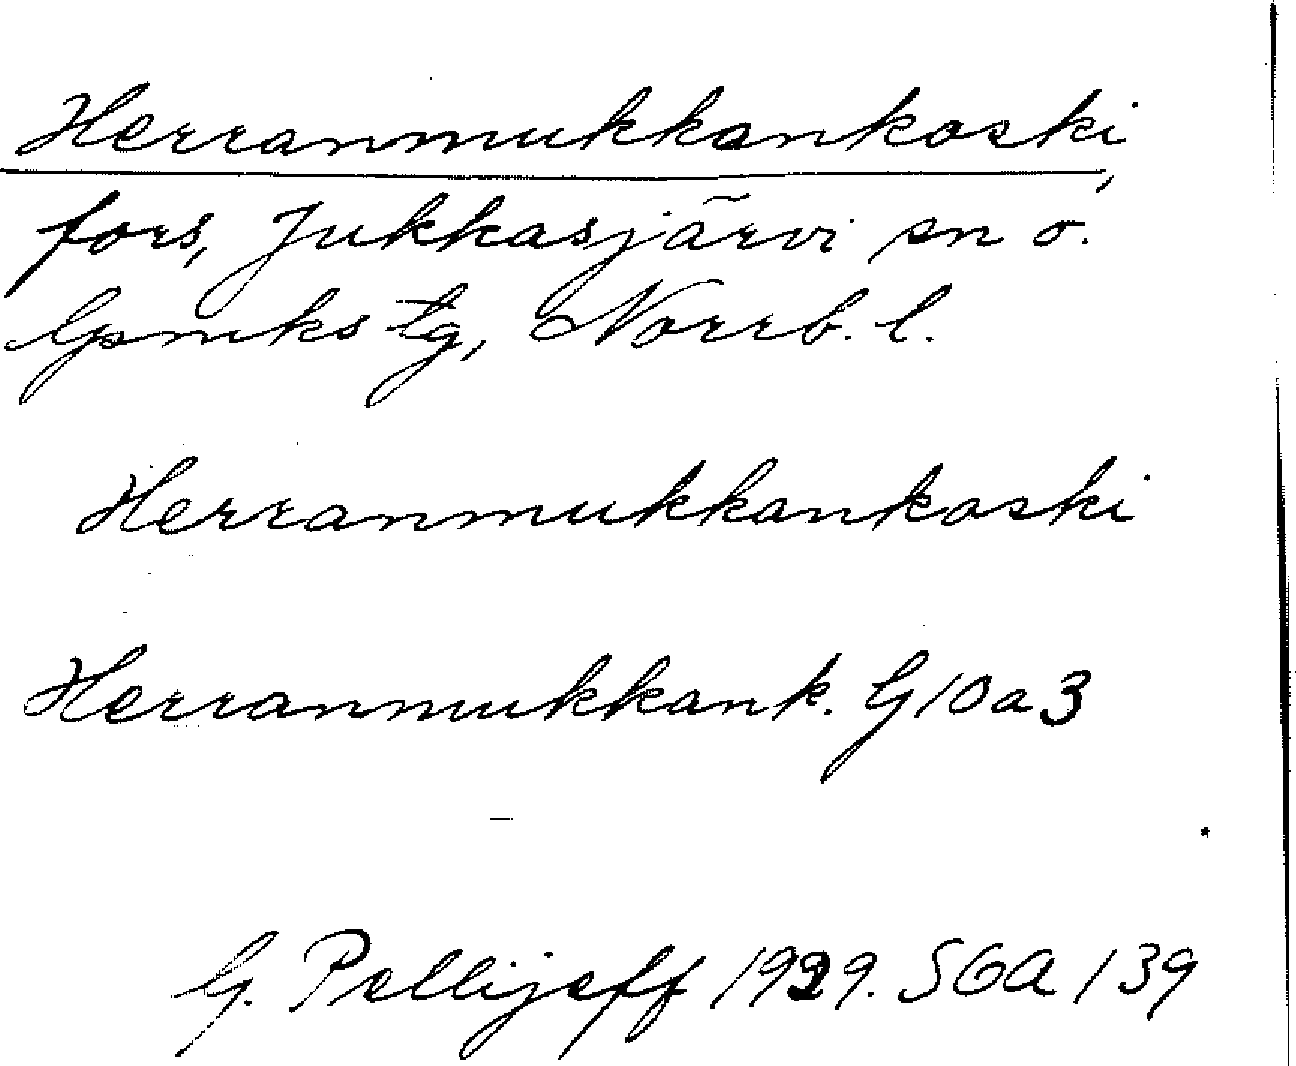 Herranmukkankoski,
fors, Jukkasjärvi sn o.
Gpmks tg, Norrb. l.
Herranmukkankoski
Herranmukkank. G10a3
G. Pellijeff 1929. SGA 139